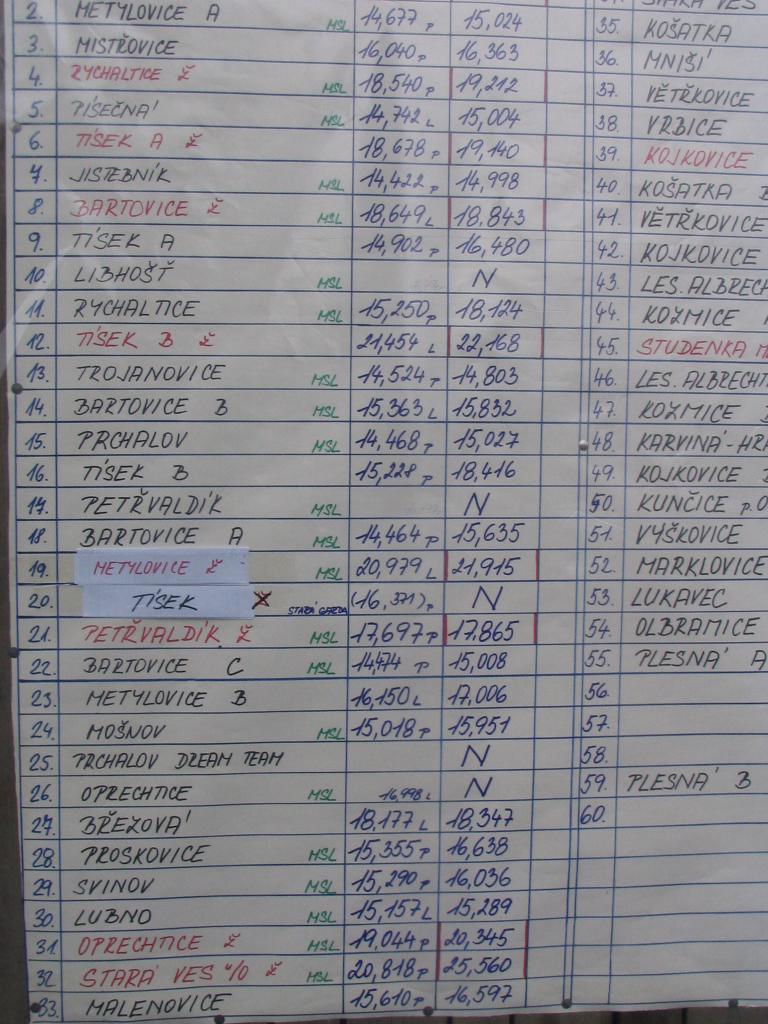 2. METYLOVICE A MSL 14,677 P 15,024
3. MISTŘOVICE 16,040 P 16,363
4. RYCHALTICE Ž MSL 18,540 P 19,212
5. PÍSEČNÁ MSL 14,742 L 15,004
6. TÍSEK A Ž 18,678 P 19,140
7. JISTEBNÍK MSL 14,422 P 14,998
8. BARTOVICE Ž MSL 18,649 L 18,843
9. TÍSEK A 14,902 P 16,480
10. LIBHOŠŤ MSL N
11. RYCHALTICE MSL 15,250 P 18,124
12. TÍSEK B Ž 21,454 L 22,168
13. TROJANOVICE MSL 14,524 P 14,803
14. BARTOVICE B MSL 15,363 L 15,832
15. PRCHALOV MSL 14,468 P 15,027
16. TÍSEK B 15,228 P 18,416
17. PETŘVALDÍK MSL N
18. BARTOVICE A MSL 14,464 P 15,635
19. METYLOVICE Ž MSL 20,979 L 21,915
20. TÍSEK STARÁ GARDA (16,371) P N
21. PETŘVALDÍK Ž MSL 17,697 P 17.865
22. BARTOVICE C MSL 14,474 P 15,008
23. METYLOVICE B 16,150 L 17,006
24. MOŠNOV MSL 15,018 P 15,951
25. PRCHALOV DREAM TEAM N
26. OPRECHTICE MSL 16,998 L N
27. BŘEZOVÁ 18,177 L 18,347
28. PROSKOVICE MSL 15,355 P 16,638
29. SVINOV MSL 15,290 P 16,036
30. LUBNO MSL 15,157 L 15,289
31. OPRECHTICE Ž MSL 19,044 P 20,345
32. STARÁ VES n/O Ž MSL 20,818 P 25,560
33. MALENOVICE 15,610 P 16,597
STARÁ VES
35. KOŠATKA
36. MNIŠÍ
37. VĚTŘKOVICE
38. VRBICE
39. KOJKOVICE
40. KOŠATKA B
41. VĚTŘKOVICE
42. KOJKOVICE
43. LES. ALBRECH
44. KOZMICE
45. STUDENKA M
46. LES. ALBRECHT
47. KOZMICE B
48. KARVINÁ-HRA
49. KOJKOVICE B
50. KUNČICE p.O
51. VYŠKOVICE
52. MARKLOVICE
53. LUKAVEC
54. OLBRAMICE
55. PLESNÁ A
56.
57.
58.
59. PLESNÁ B
60.